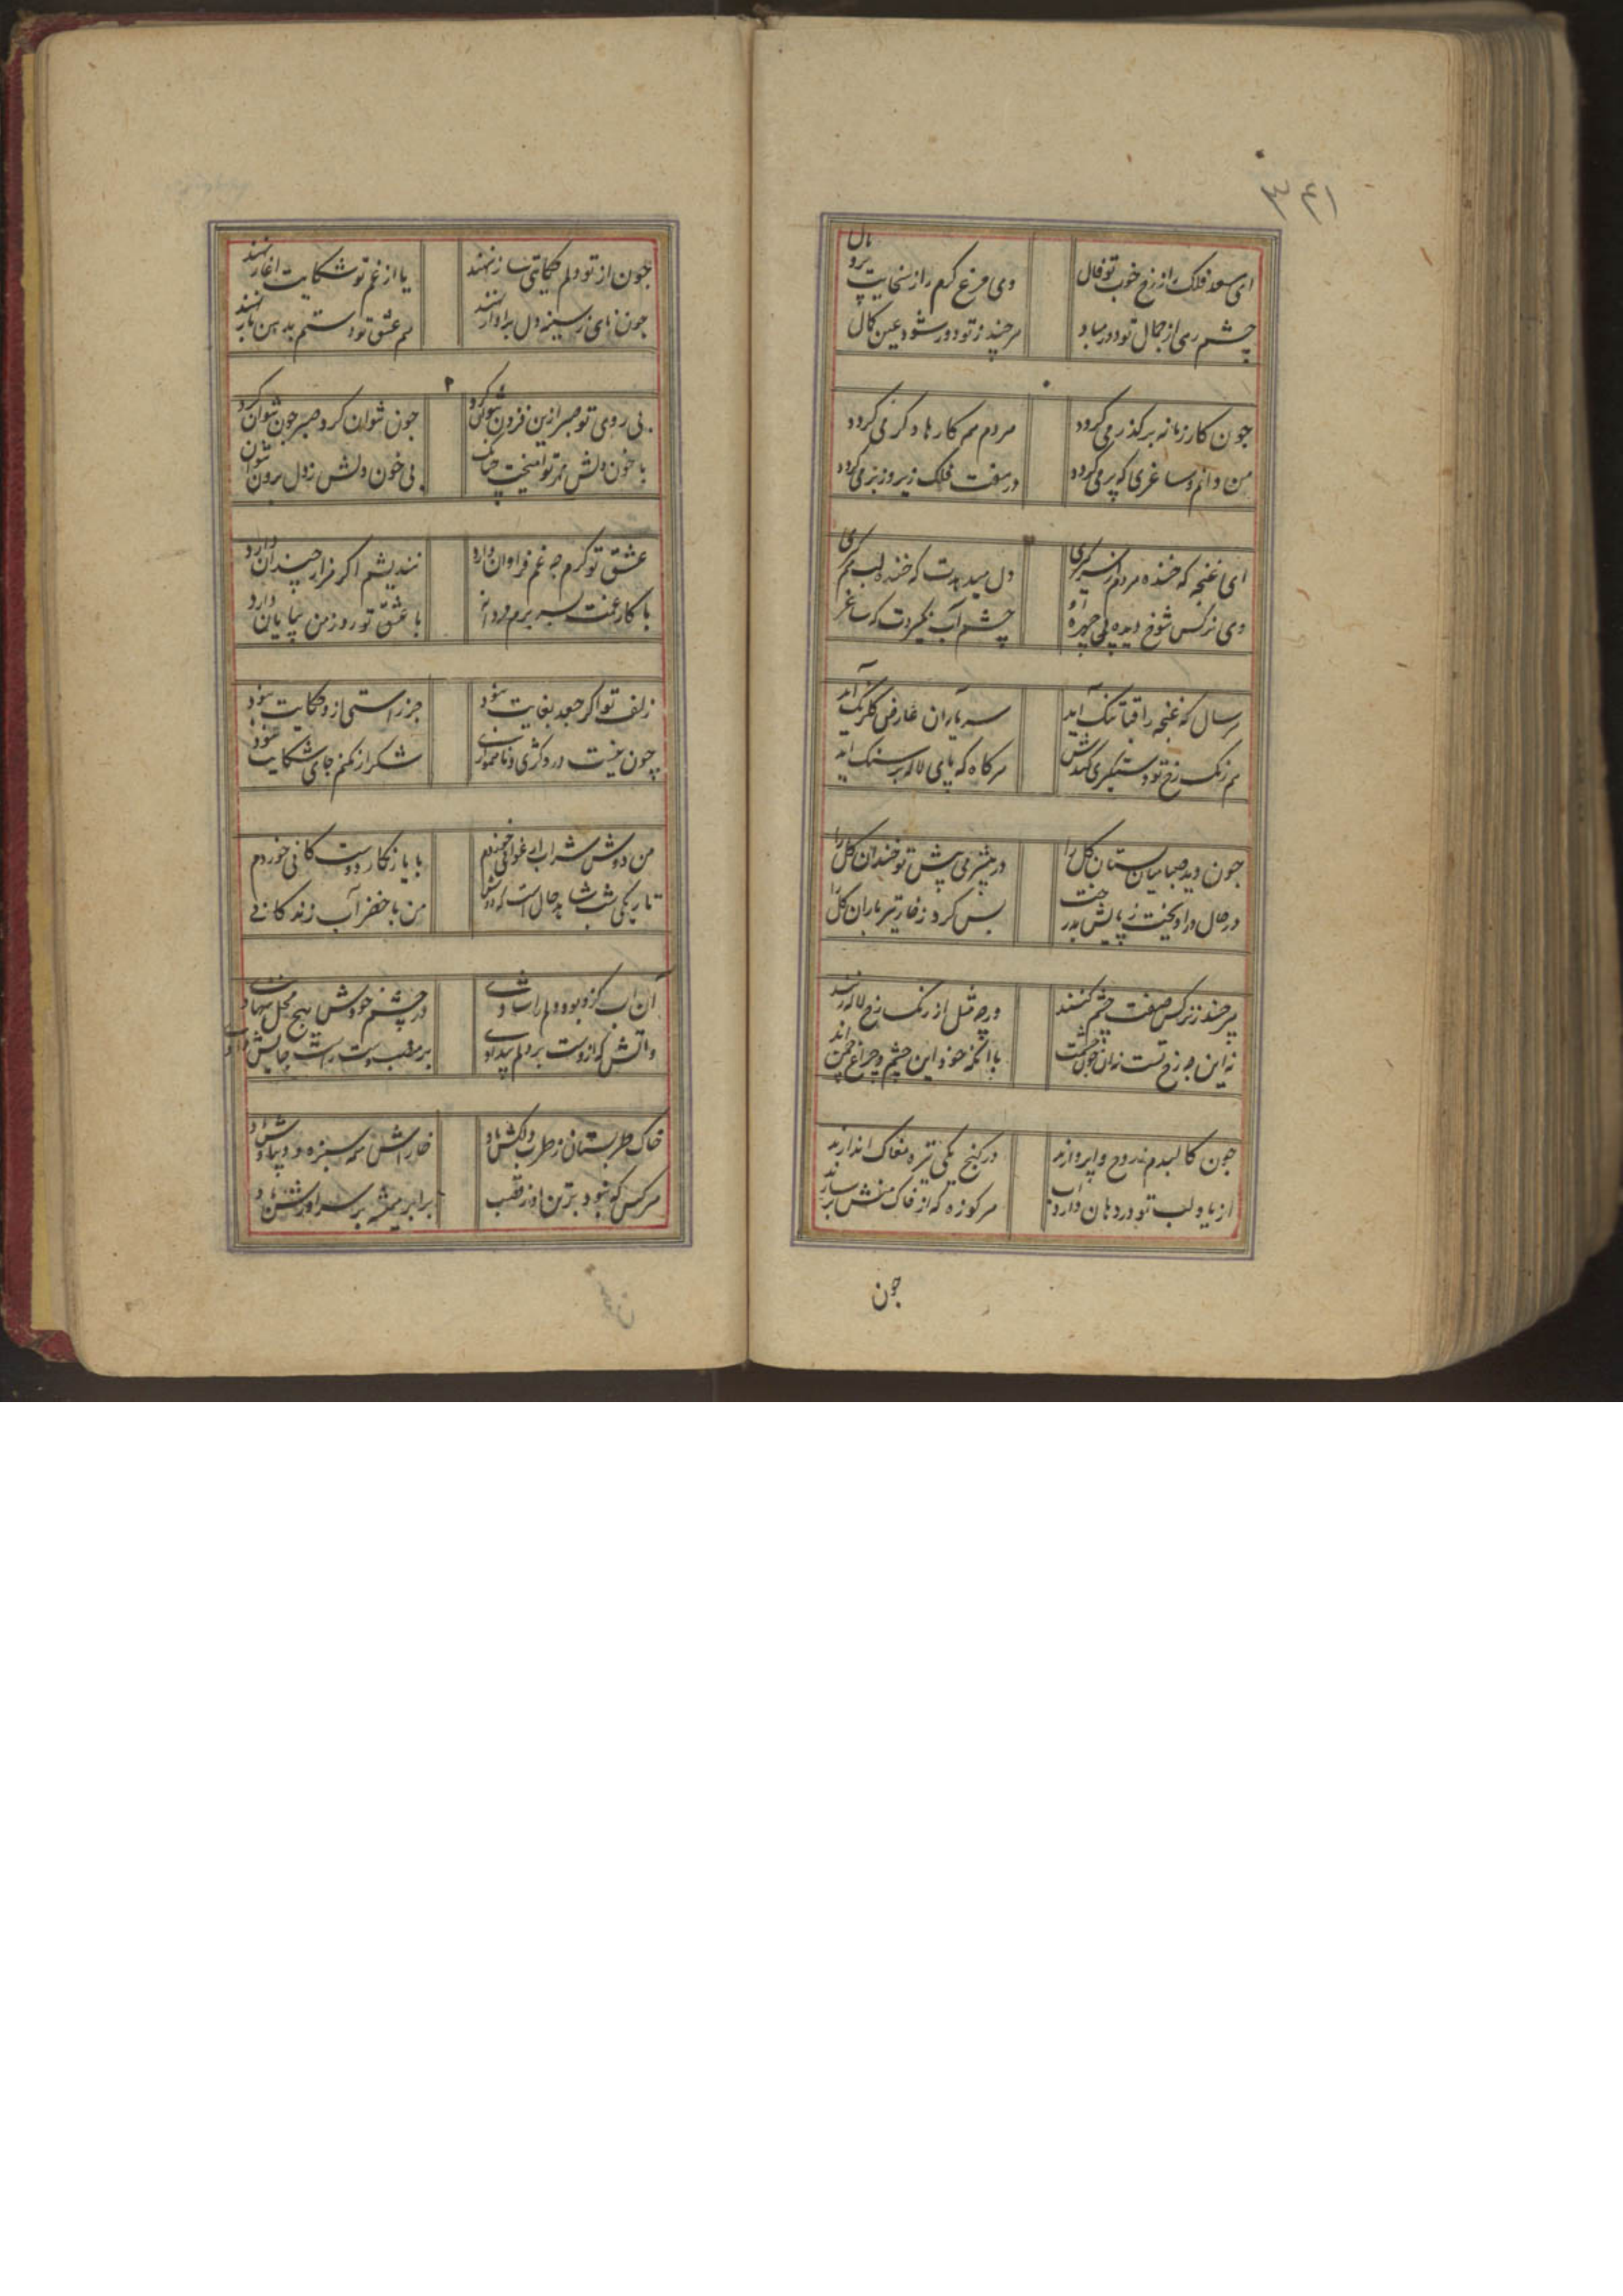 ۳۴۱
ای سعد فلک را ز رخ خوب تو فال
وی مرغ کرم را ز سخایت پر و بال
چشم رمی از جمال تو دور مباد
هر چند ز تو دور شود عین کمال
جون کار زمانه بر کذر می کردد
مردم همه کارها دکر می کردد
من دانم و ساغری که پر می کردد
در هفت فلک زیر و زبر می کردد
ای غنچه که خنده مردم از سر کیری
دل میدهدت که خنده لب بر کیری
وی نرکس شوخ دیده بی چهره او
چشم آب نکیردت که ساغر
هر سال که غنچه را قبا تنک آید
سر باران عارض کلرنک آید
هم رنک رخ تو دستکیری کندش
هر کاه که پای لاله بر سنک آید
جون دید صبا میان بستان کل را
در پیش تو خندان کل را
در حال در آویخت ز پایش بدرخت
بس کرد ز خار تیر باران کل را
هر چند ز نرکس صفت چشم کنند
ورچه مثل از رنک رخ لاله زنند
نه این جو رخ تست نه آن جون جشمت
با آنکه خود این چشم و چراغ چمن اند
جون کالبدم ز روح واپردازند
در کنج یکی تیره مغاک اندازند
از یاد لب تو در دهان دارد آب
هر کوزه که از خاک منش بر سازند
جون
جون از تو دلم حکایتی ساز نهند
یا از غم تو شکایت آغاز نهند
جون نای ز سینه دل بر آواز نهند
هم عشق تو دستم بدهن باز نهند
بی روی تو صبر ازین فزون نتوان کرد
جون نتوان کرد صبر جون نتوان کرد
با خون دلش مهر تو آمیخت چنانک
بی خون دلش ز دل برون نتوان
عشق تو کرم جه غم فراوان دارد
نندیشم اکر هزار چندان دارد
با کار غمت بسر برم مردانه
با عشق تو روز من بپایان دارد
زلف تو اکر جعد بغایت نبود
جز راستی از و حکایت نبود
چون نیست در و کژی و نا همواری
شکر از نکنم جای شکایت نبود
من دوش شراب ارغوانی خوردم
با یاد نکار دوستکانی خوردم
تاریکی شب شاهد حال است که دوش
من با خضر آب زندکانی
آن آب کزو بود دلم را شادی
در چشم خودش بیج محل ننهادی
و آتش که ازوست بر دلم بیدادی
خاک طربستان ز طرب دلکش باد
خارش همه سبزه و دیباوش باد
هر کس کو نبود برین او ز قصب